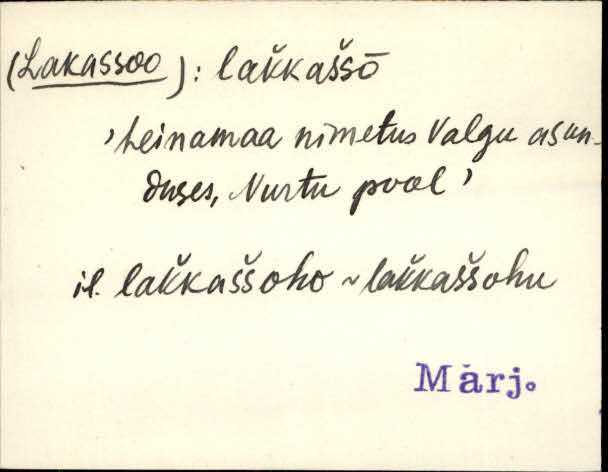 (Lakassoo): lak̆kaššō
'heinamaa nimetus Valgu asun-
duses, Nurtu pool'
il. lak̆kaššoho ~ lak̆kaššohu
Märj.